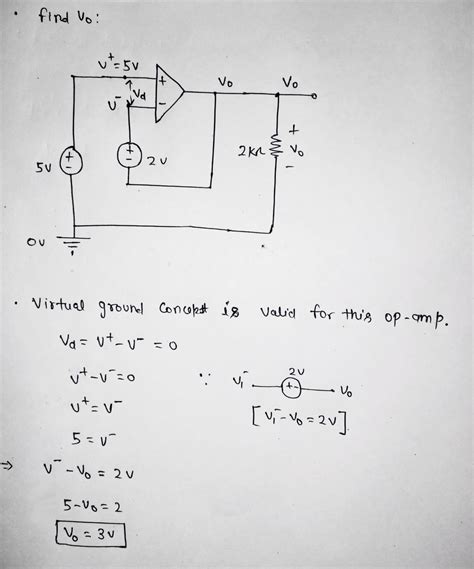 • find Vo:
V⁺=5V
+
Vd
V⁻
−
Vo
Vo
+
−
2V
5V
+
−
2KΩ
+
Vo
−
0V
• Virtual ground Concept is valid for this op-amp.
Vd = V⁺-V⁻ = 0
V⁺-V⁻=0
V⁺=V⁻
5 = V⁻
⇒ V⁻-Vo = 2V
5-Vo = 2
Vo = 3V
∵ V₁⁻
2V
+-
Vo
[V₁⁻-Vo = 2V]